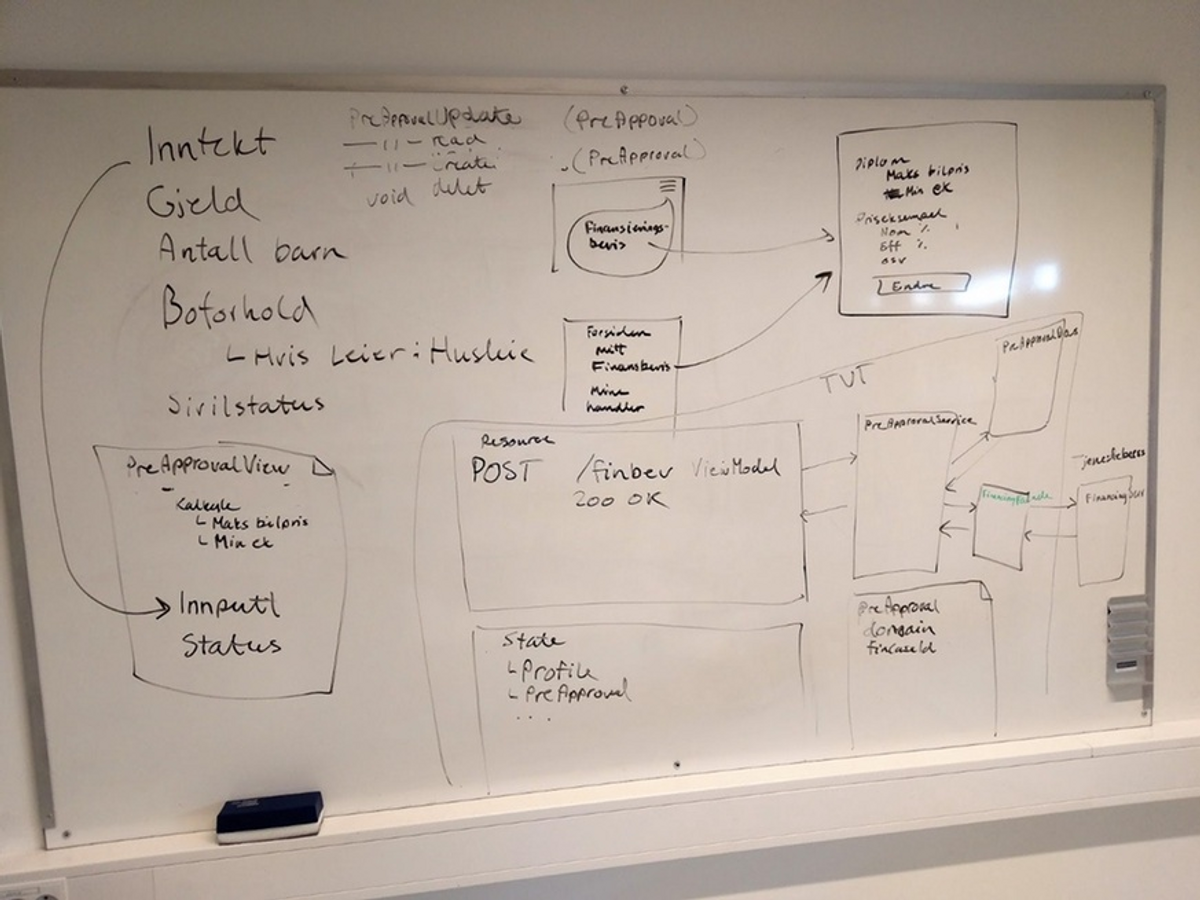 Inntekt
Gjeld
Antall barn
Boforhold
Hvis Leier: Husleie
Sivilstatus
PreApprovalUpdate (PreApproval)
— " — read (PreApproval)
— " — create
void delet
Finansierings-
bevis
Forsiden
mitt
Finansbevis
Mine
handler
Diplom
Maks bilpris
Min ek
Priseksempel
Nom %
Eff %
osv
Endre
PreApprovalView
Kalkyle
Maks bilpris
Min ek
Inputt
Status
TVT
Resource
POST /finbev ViewModel
200 OK
State
Profile
PreApproval
...
PreApprovalService
PreApproval
domain
fincaseId